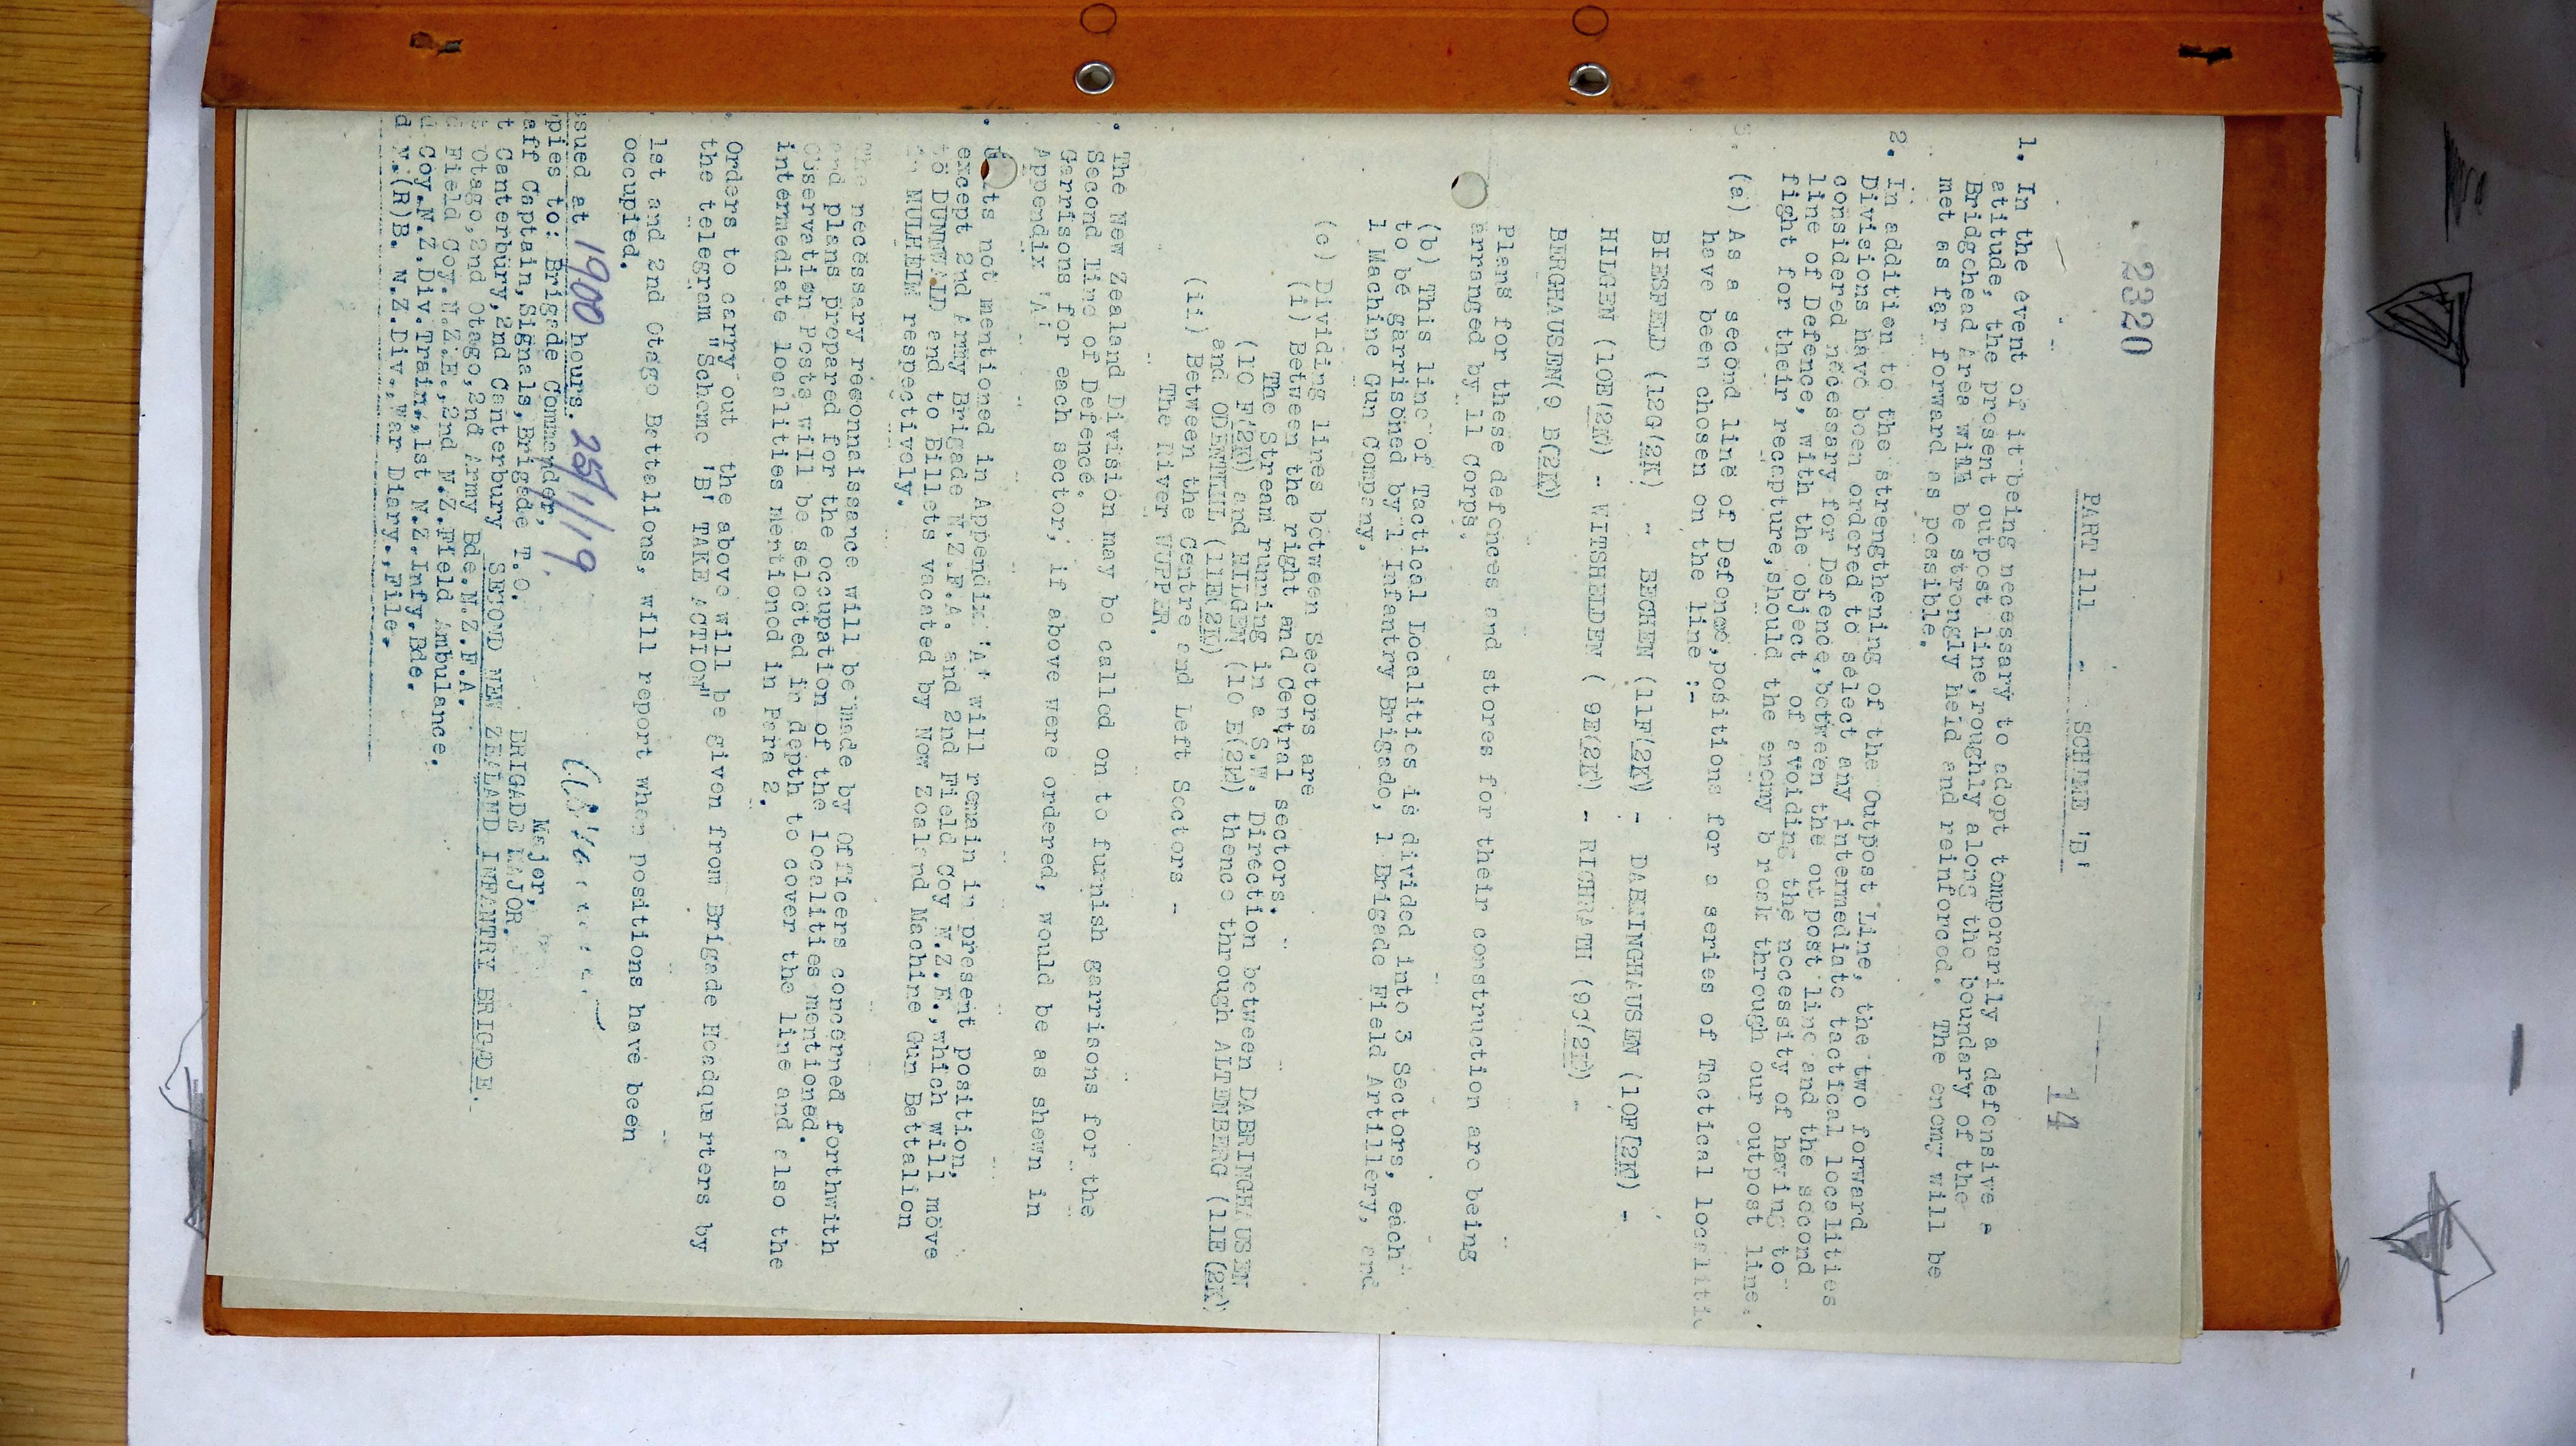 2320
14
PART 111 - SCHEME 'B'
1. In the event of it being necessary to adopt temporarily a defensive
atitude, the present outpost line,roughly along the boundary of the
Bridgehead Area will be strongly held and reinforced. The enemy will be
met as far forward as possible.
2. In addition to the strengthening of the Outpost Line, the two forward
Divisions have been ordered to select any intermediate tactical localities
considered necessary for Defence,between the outpost line and the second
line of Defence, with the object of avoiding the necessity of having to
fight for their recapture,should the enemy break through our outpost line.
3. (a) As a second line of Defence,positions for a series of Tactical localitie
have been chosen on the line :-
BIESFELD (12G(2K) - BECHEN (11F(2K) - DABINGHAUSEN (10F(2K) -
HILGEN (10E(2K) - WITSHELDEN ( 9E(2K) - RICHRATH (9C(2K) -
BERGHAUSEN(9 B(2K)
Plans for these defences and stores for their construction are being
arranged by 11 Corps.
(b) This line of Tactical Localities is divided into 3 Sectors, each
to be garrisoned by 1 Infantry Brigade, 1 Brigade Field Artillery, and
1 Machine Gun Company.
(c) Dividing lines between Sectors are
(i) Between the right and Central sectors.
The Stream running in a S.W. Direction between DABRINGHAUSEN
(10 F(2K) and HILGEN (10 E(2K) thence through ALTENBERG (11E(2K)
and ODENTHIL (11E(2K)
(ii) Between the Centre and Left Sectors -
The River WUPPER.
. The New Zealand Division may be called on to furnish garrisons for the
Second Line of Defence.
Garrisons for each sector, if above were ordered, would be as shewn in
Appendix 'A'
. its not mentioned in Appendix 'A' will remain in present position,
except 2nd Army Brigade N.Z.F.A. and 2nd Field Coy N.Z.E.,which will move
to DUNWALD and to Billets vacated by New Zealand Machine Gun Battalion
in MULHEIM respectively.
The necessary reconnaissance will be made by Officers concerned forthwith
and plans prepared for the occupation of the localities mentioned.
Observation Posts will be selected in depth to cover the line and also the
intermediate localities mentioned in Para 2.
. Orders to carry out the above will be given from Brigade Headquarters by
the telegram "Scheme 'B' TAKE ACTION"
. 1st and 2nd Otago Battalions, will report when positions have been
occupied.
Major,
BRIGADE MAJOR.
SECOND NEW ZEALAND INFANTRY BRIGADE.
ssued at 1900 hours. 25/1/19.
pies to: Brigade Commander,
aff Captain,Signals,Brigade T.O.
t Canterbury,2nd Canterbury
t Otago,2nd Otago,2nd Army Bde.N.Z.F.A.
d Field Coy.N.Z.E.,2nd N.Z.Field Ambulance.
d Coy.N.Z.Div.Train,1st N.Z.Infy.Bde.
d N.(R)B. N.Z.Div.,War Diary.,File.